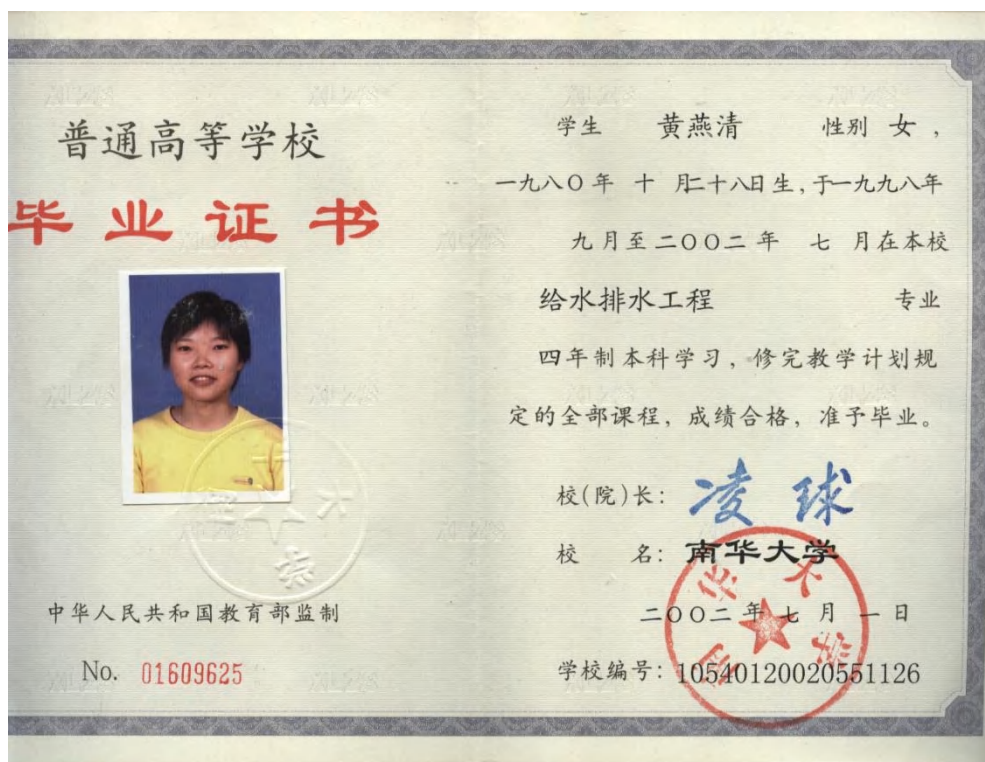 普通高等学校
毕业证书
中华人民共和国教育部监制
No. 01609625
学生 黄燕清 性别 女，
一九八〇年 十 月二十八日生，于一九九八年
九月至二〇〇二年 七 月在本校
给水排水工程 专业
四年制本科学习，修完教学计划规
定的全部课程，成绩合格，准予毕业。
校(院)长： 凌球
校 名： 南华大学
二〇〇二年七月一日
学校编号：105401200205511​26
南华大学